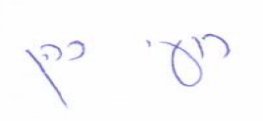 רועי כהן